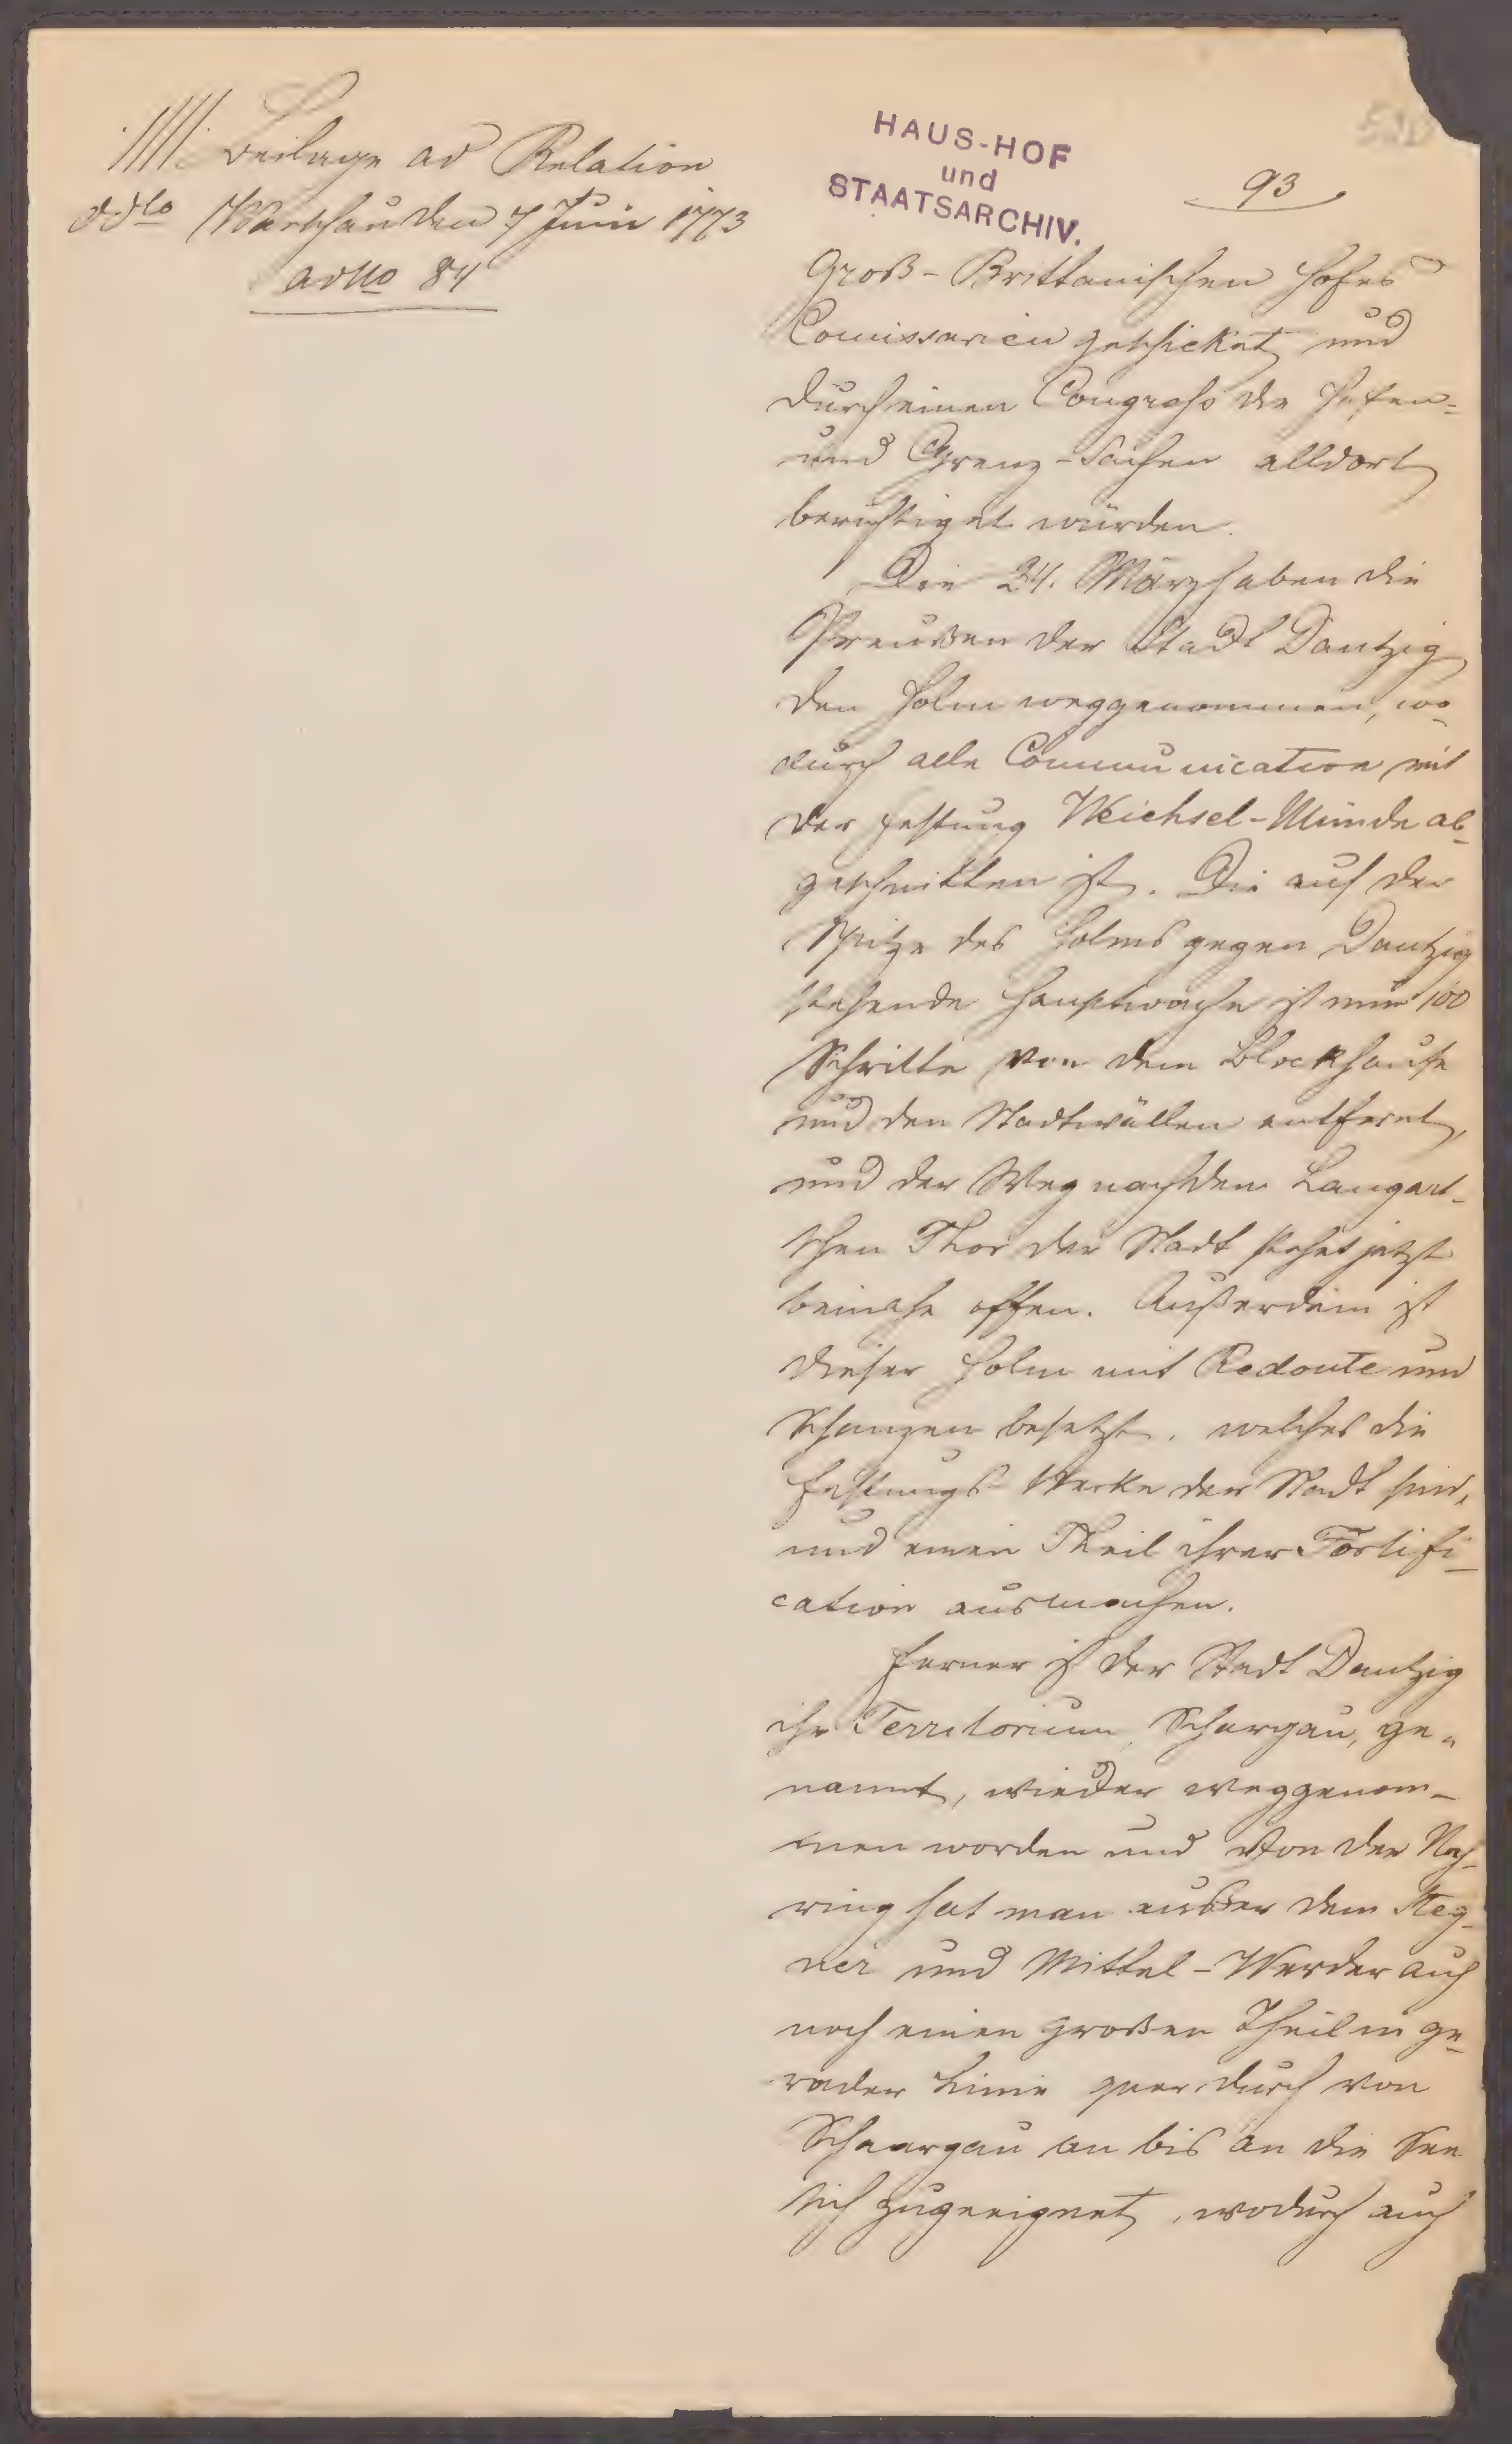 Beilage ad Relation
ddto Warschau den 7 Juni 1773
ad No 84
HAUS-HOF
und
STAATSARCHIV.
93
Groß-Brittanischen Hofes
Comissarien geschicket und
durch einen Congress die Hafen-
und Grenz-Sachen alldort
berichtiget würden.
Die 24. März haben die
Preußen der Stadt Dantzig
den Holm weggenommen, wo-
durch alle Communication mit
der Festung Weichsel-Münde ab-
geschnitten ist. Die auf der
Spitze des Holms gegen Dantzig
stehende Hauptwache ist nur 100
Schritte von dem Blockhause
und den Stadtwällen entfernt,
und der Weg nach dem Langart-
schen Thor der Stadt stehet jetzt
beinahe offen. Außerdem ist
dieser Holm mit Redoute und
Schanzen besetzt, welches die
Festungs Werke der Stadt sind,
und einen Theil ihrer Fortifi-
cation ausmachen.
Ferner ist der Stadt Dantzig
ihr Territorium, Schargau, ge-
nannt, wieder weggenom-
men worden und von der Neh-
ring hat man außer dem Steg-
ner und Mittel-Werder auch
noch einen großen Theil in ge-
rader Linie quer durch von
Schaargau an bis an die See
sich zugeeignet, wodurch auch